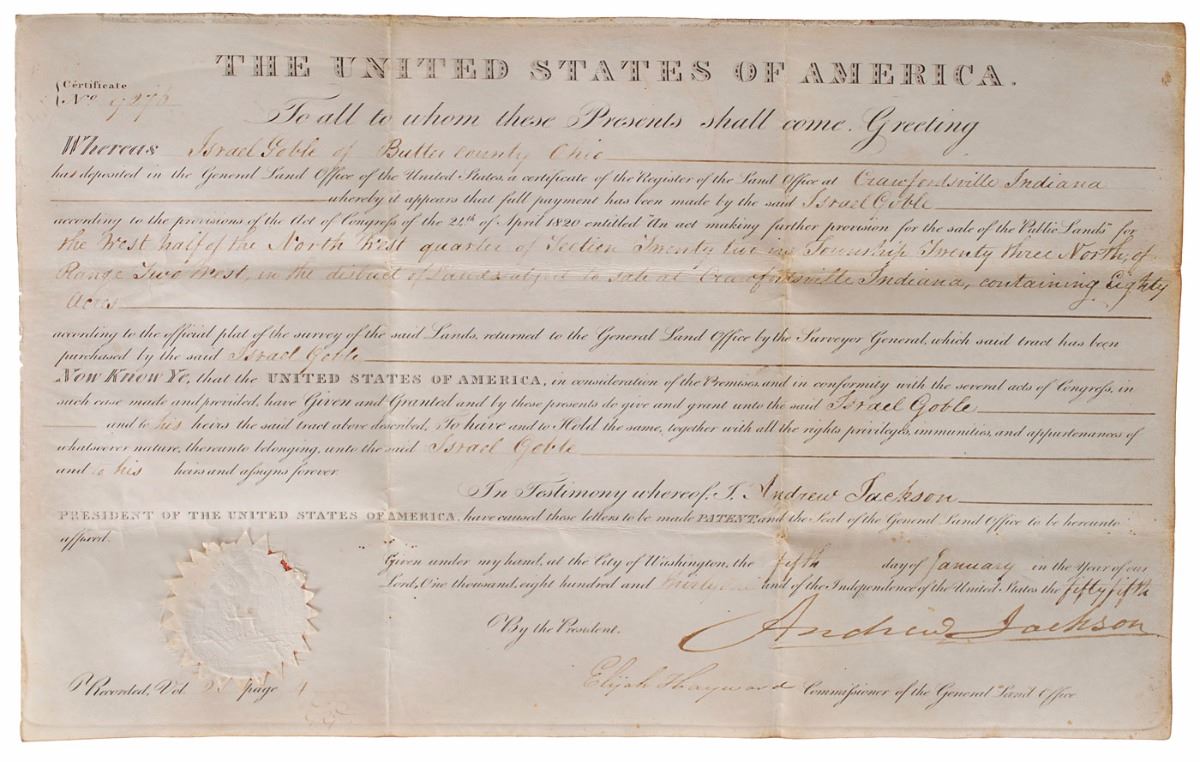 THE UNITED STATES OF AMERICA.
Certificate
No. 9276
To all to whom these Presents shall come, Greeting
Whereas Israel Goble of Butler County Ohio
has deposited in the General Land Office of the United States, a certificate of the Register of the Land Office at Crawfordsville Indiana
whereby it appears that full payment has been made by the said Israel Goble
according to the provisions of the Act of Congress of the 24th of April 1820 entitled "An act making further provision for the sale of the Public Lands" for
the West half of the North West quarter of Section Twenty five in Township Twenty three North, of
Range Two West, in the district of Lands subject to sale at Crawfordsville Indiana, containing Eighty
Acres
according to the official plat of the survey of the said Lands, returned to the General Land Office by the Surveyor General, which said tract has been
purchased by the said Israel Goble
Now Know Ye, that the UNITED STATES OF AMERICA, in consideration of the Premises and in conformity with the several acts of Congress, in
such case made and provided, have Given and Granted and by these presents do give and grant unto the said Israel Goble
and to his heirs the said tract above described, To have and to Hold the same, together with all the rights privileges, immunities, and appurtenances of
whatsoever nature, thereunto belonging, unto the said Israel Goble
and to his heirs and assigns forever.
In Testimony whereof, I, Andrew Jackson
PRESIDENT OF THE UNITED STATES OF AMERICA, have caused these letters to be made PATENT, and the Seal of the General Land Office to be hereunto
affixed.
Given under my hand, at the City of Washington, the fifth day of January in the Year of our
Lord, One thousand, eight hundred and thirty one and of the Independence of the United States the fifty fifth
Andrew Jackson
By the President.
Elijah Hayward Commissioner of the General Land Office
Recorded, Vol page 4